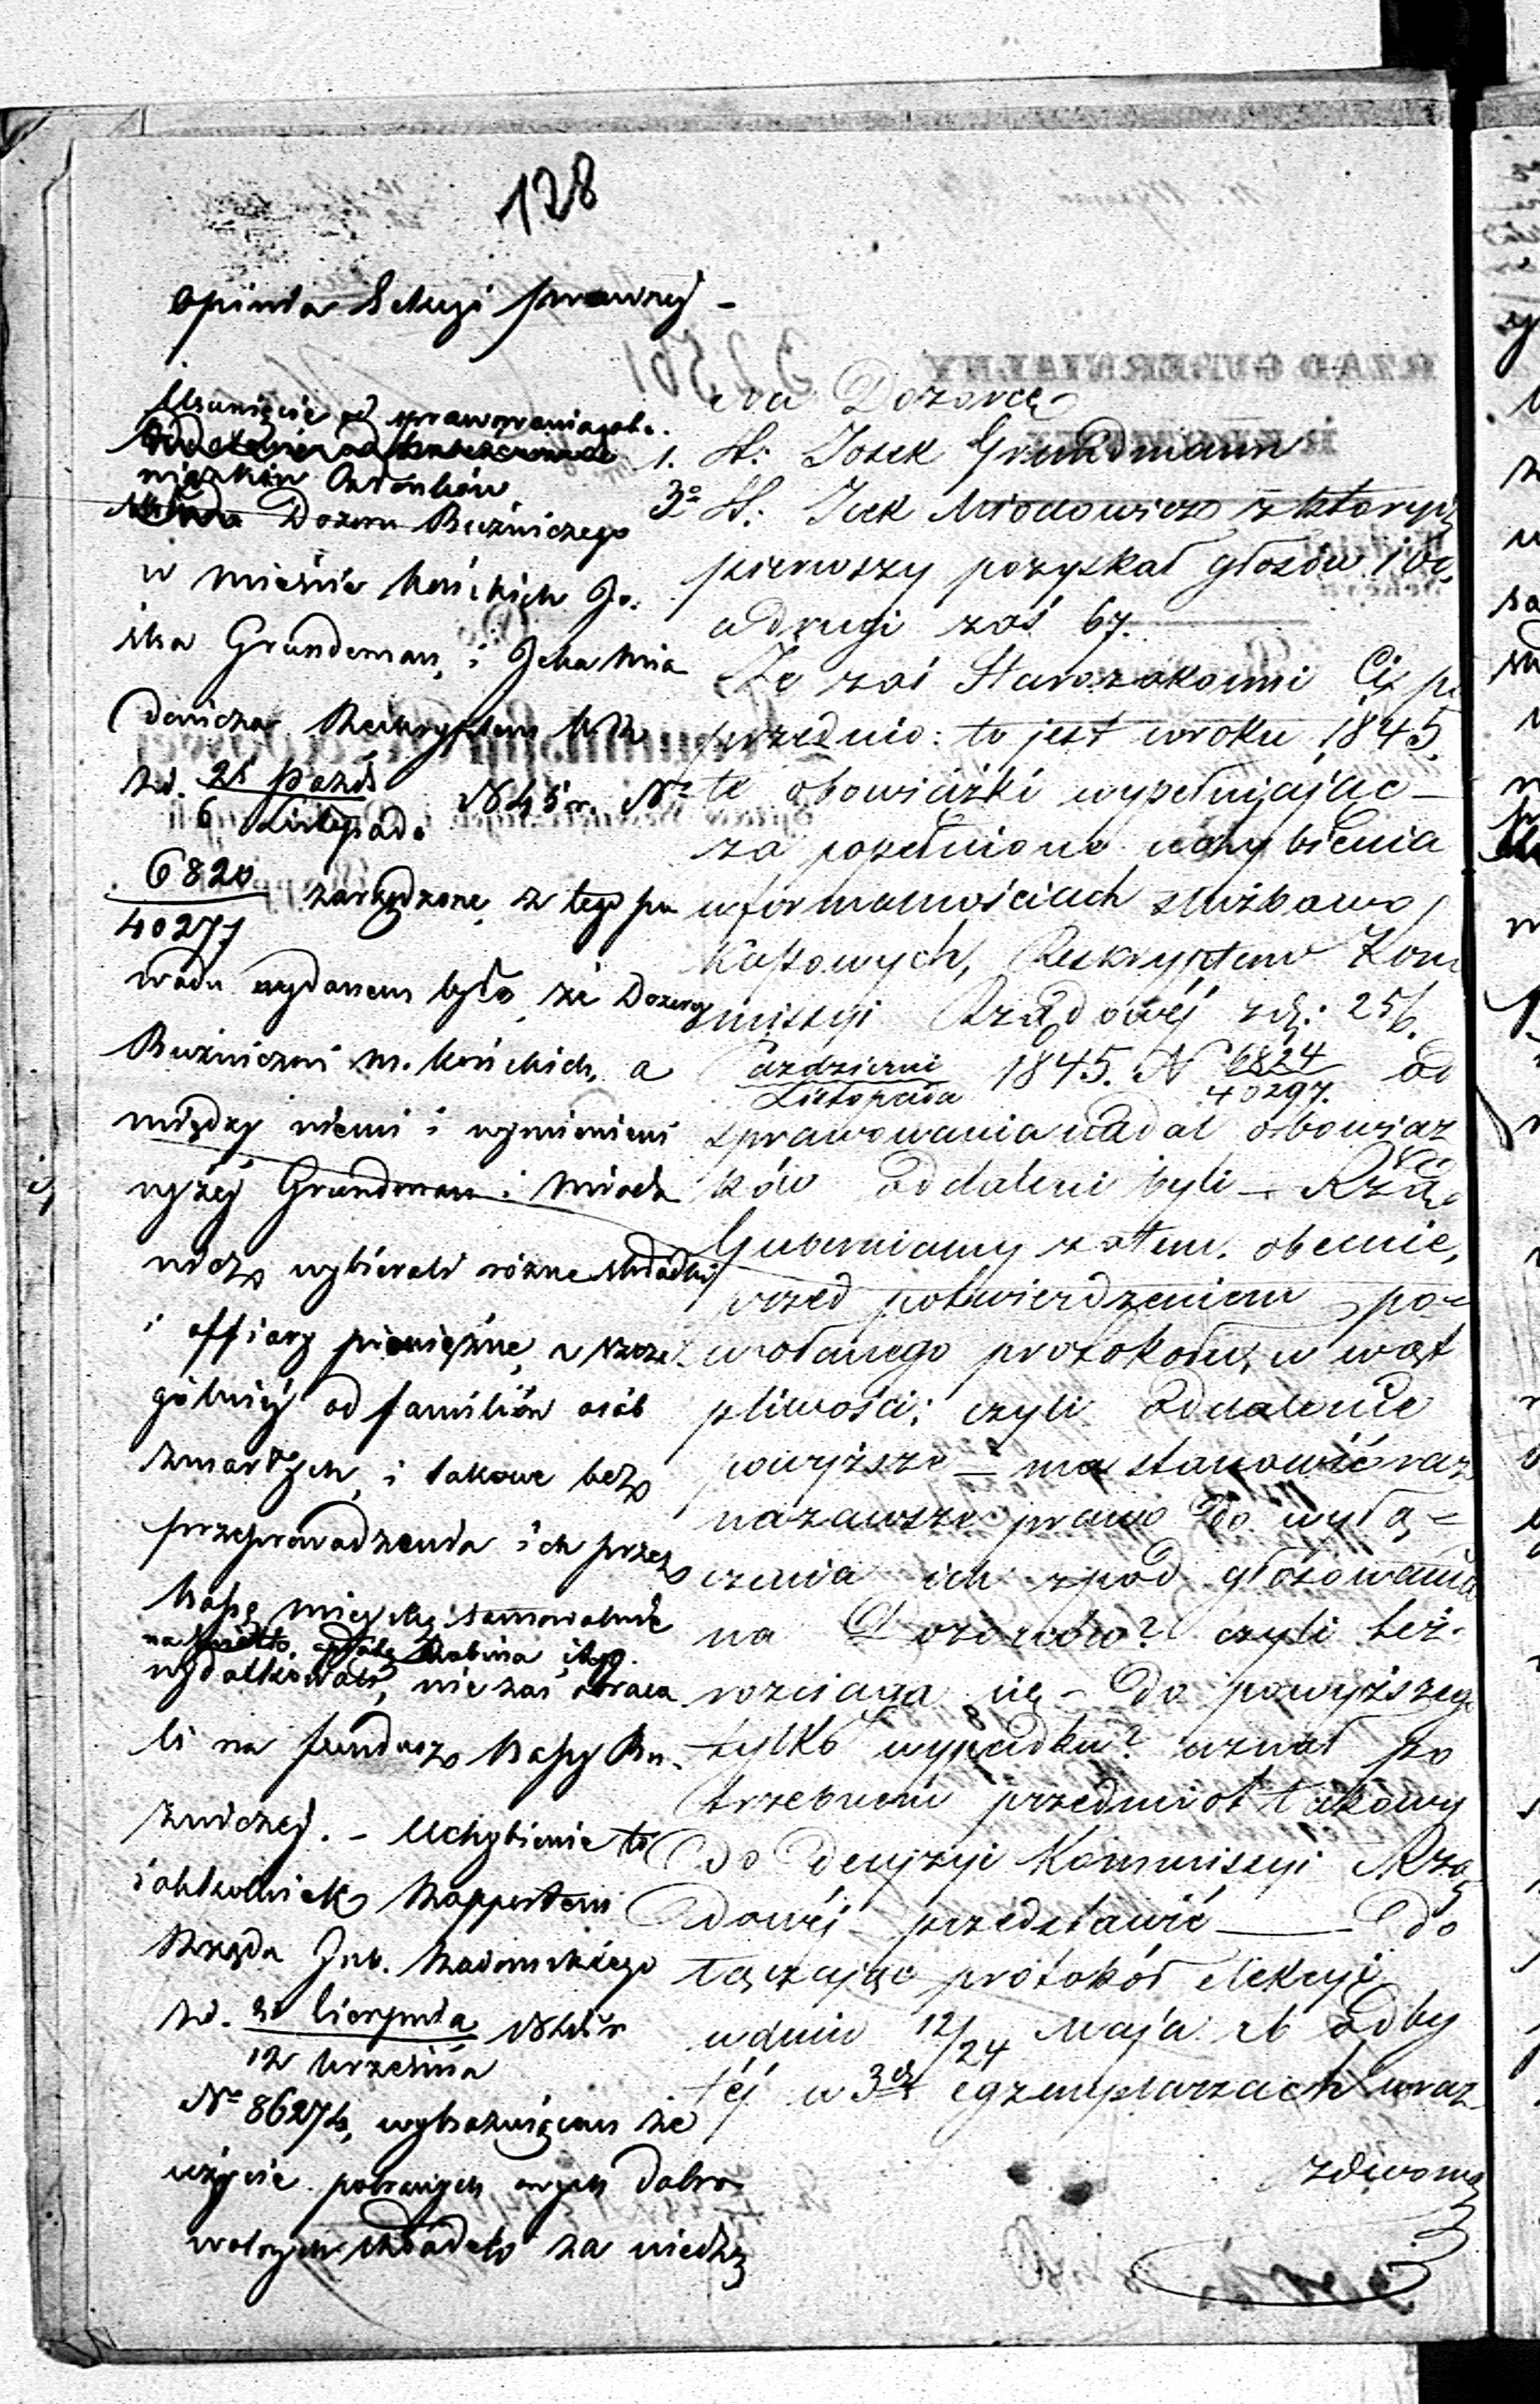 128
Opinia Sekcyi prawnej –
Usunięcie od sprawowania obo-
wiązków Członków
Dozoru Bużniczego
w mieście Końskich Jo-
ska Grundman, i Icka Mio
dowicza Reskryptem K. R.
z d. 25 Paźdz / 6 Listopada 1845 r. No
6820 / 40277 zarządzone, z tego po
wodu wydanem było, że Dozorcy
Bużniczni m. Końskich, a
między niemi i wymienieni
wyżej Grundman i Miodo
wicz wybierali różne składki
i offiary pieniężne, a szcze-
gólniej od familiów osób
zmarłych, i takowe bez
przeprowadzenia ich przez
Kassę miejską samowolnie
na światło, opłatę Rabina itp.
wydatkowali, nie zaś obraca
li na fundusz Kassy Bu-
żniczej. – Uchybienie to
jakkolwiek Rapportem
Rządu Gub. Radomskiego
z d. 31 Sierpnia / 12 Września
No 86274, wyjaśniającem że
użycie pobranych owych dobro
wolnych składek za wiedzą
na Dozorcę
1. St: Josek Grundmann
3o St: Icek Miodowicz z których
pierwszy pozyskał głosów
a drugi zaś 67.
Że zaś Starozakonni Ci po
przednio: to jest w roku 1845.
te obowiązki wypełniając –
za popełnione uchybienia
w formalnościach służbowo
Kassowych, Reskryptem Kom
missyi Rządowéj z d: 25/6.
Październi / Listopada 1845. N 6824 / 40297. od
sprawowania nadal obowiąz
ków oddaleni byli – Rząd
Gubernialny zatem obecnie,
przed potwierdzeniem po-
wołanego protokołu, w wąt
pliwości: czyli oddalenie
powyższe – ma stanowić raz
na zawsze prawo do wyłą=
czenia ich z pod głosowania
na Dozorców? czyli też
rozciąga się – do powyższego
tylko wypadku? uznał po
trzebném przedmiot takowy
do decyzyi Kommissyi Rzą
dowéj przedstawić – Do
łączając protokół elekcyi
w dniu 12/24 Maja rb odby
téj w 3ch egzemplarzach wraz
z dwoma